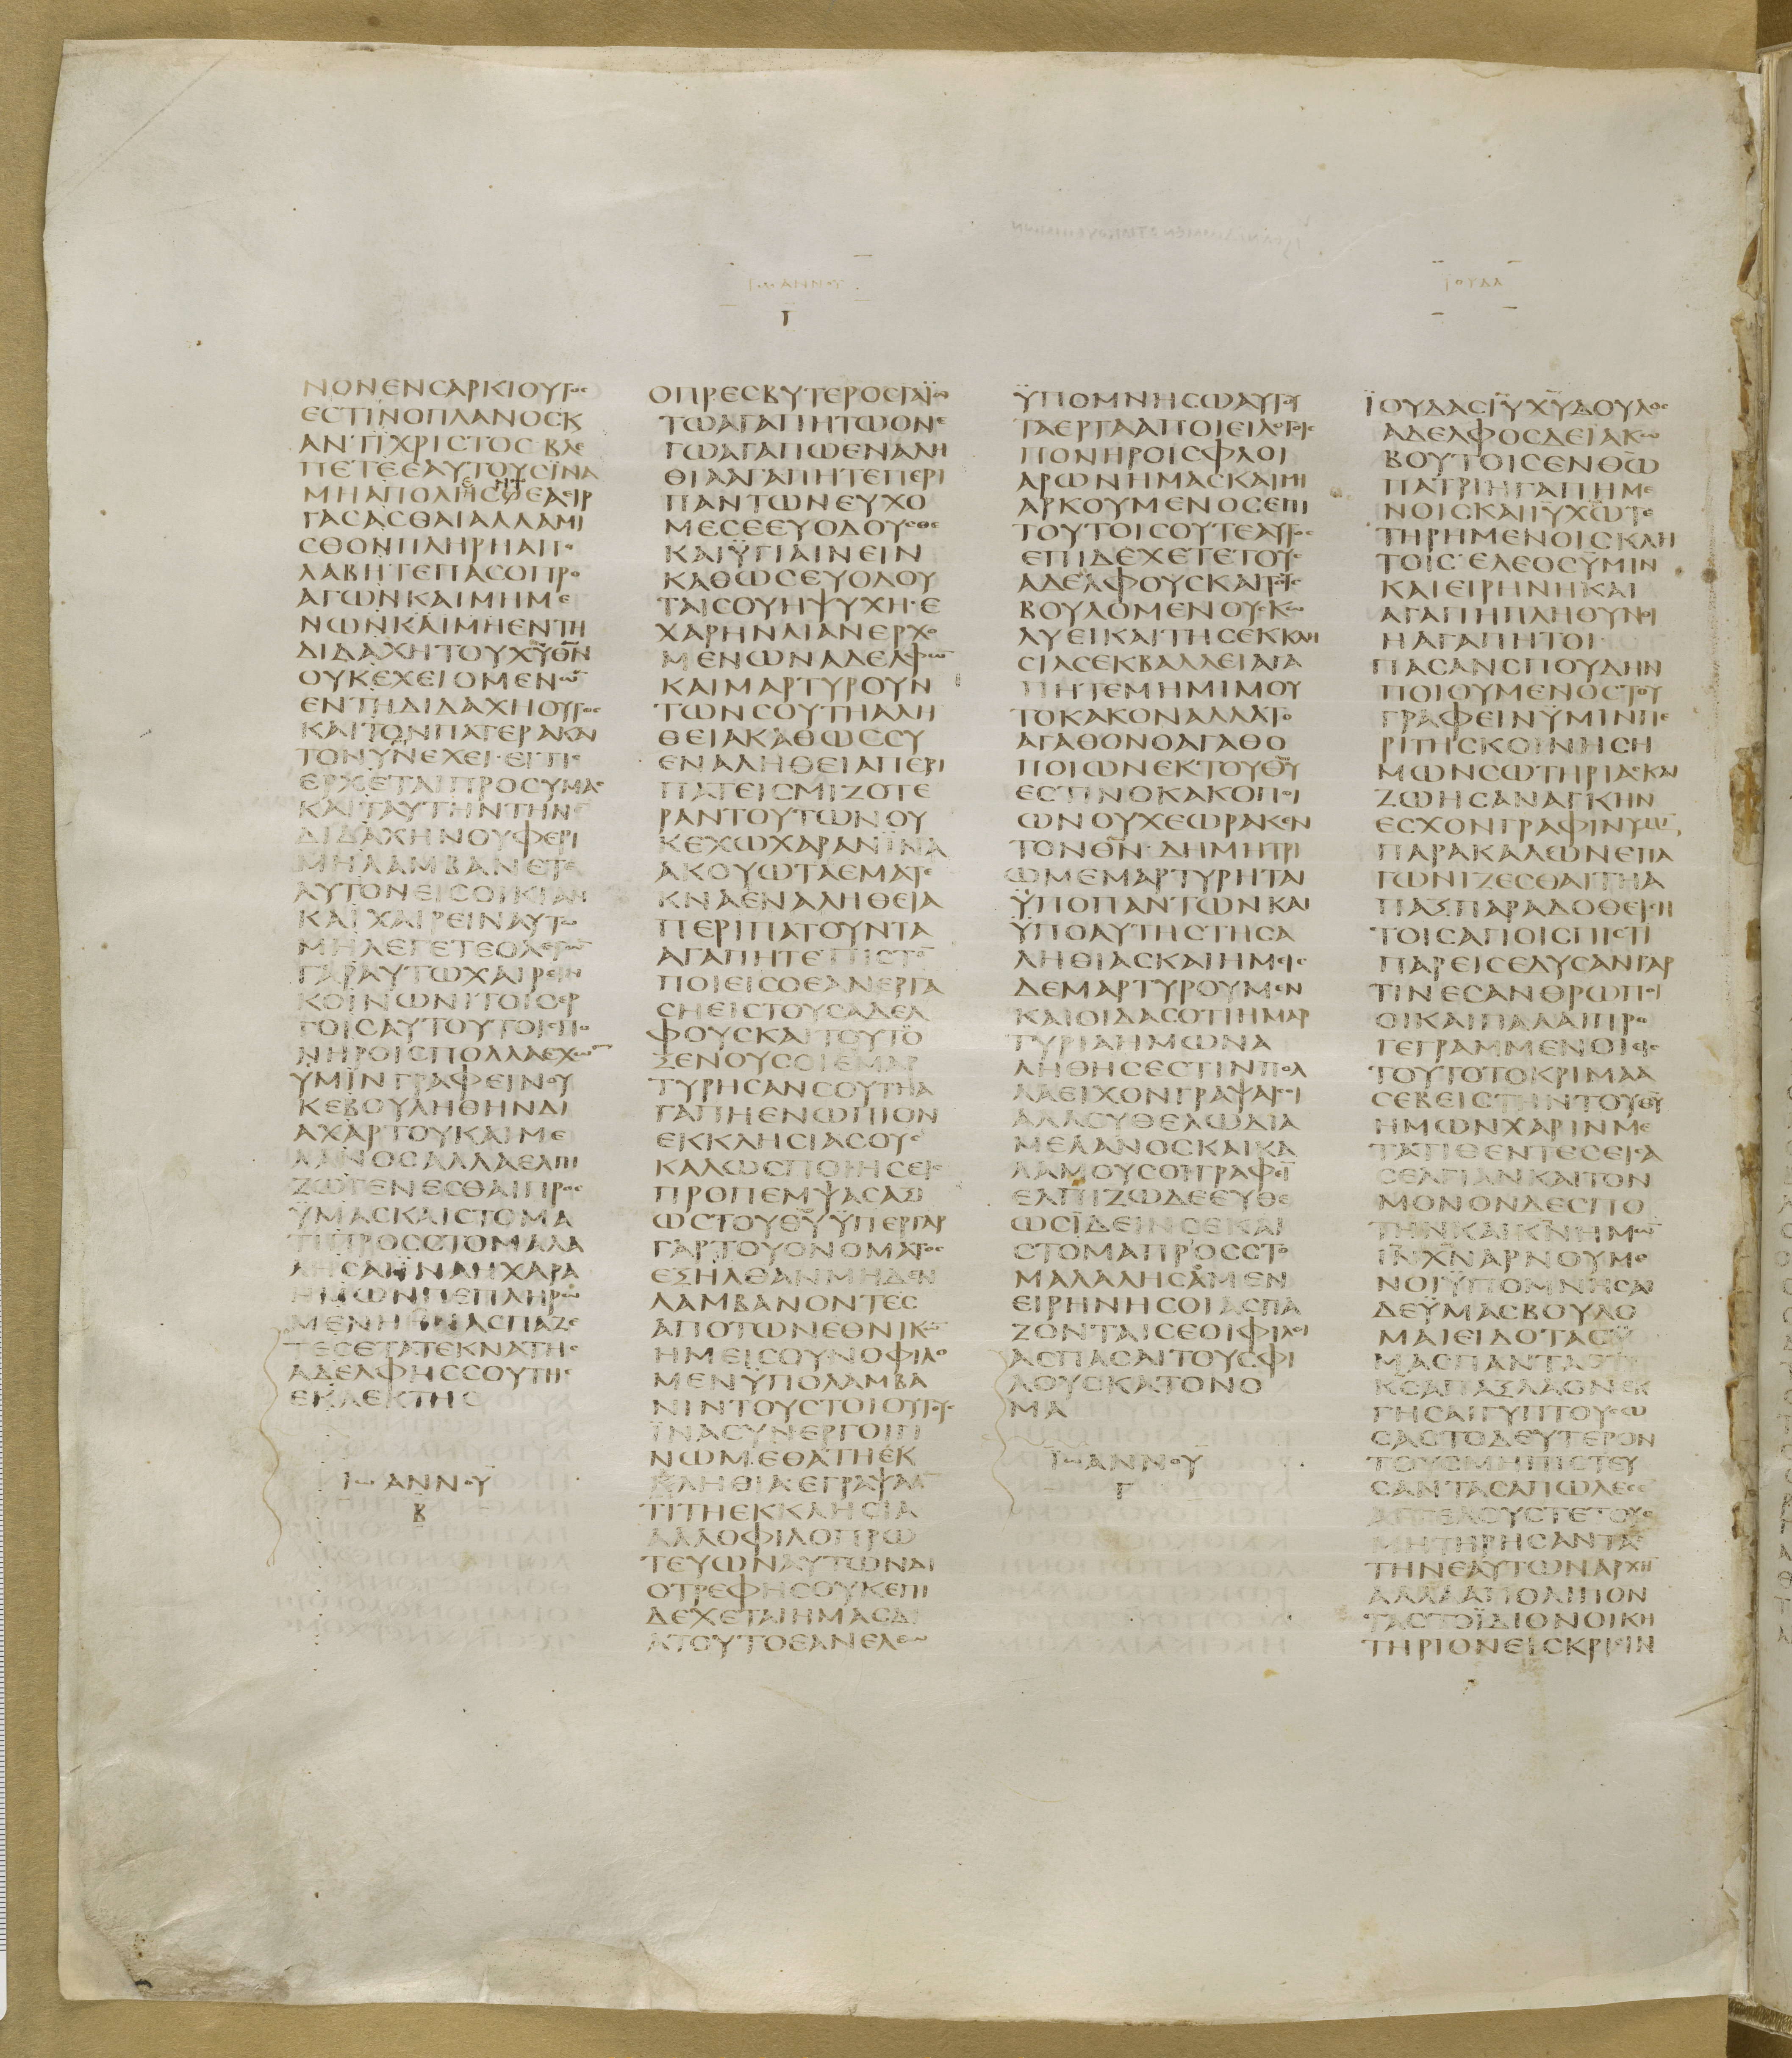 ΙωΑΝΝΟΥ
Γ
ΪΟΥΔΑ
ΝΟΝΕΝϹΑΡΚΙΟΥΤΟϹ
ΕϹΤΙΝΟΠΛΑΝΟϹΚ
ΑΝΤΙΧΡΙϹΤΟϹΒΛΕ
ΠΕΤΕΕΑΥΤΟΥϹΪΝΑ
ΜΗΑΠΟΛΗϹΘΕΑΕΙΡ
ΓΑϹΑϹΘΑΙΑΛΛΑΜΙ
ϹΘΟΝΠΛΗΡΗΑΠΟ
ΛΑΒΗΤΕΠΑϹΟΠΡΟ
ΑΓΩΝΚΑΙΜΗΜΕ
ΝΩΝΚΑΙΜΗΕΝΤΗ
ΔΙΔΑΧΗΤΟΥΧΥΘΝ
ΟΥΚΕΧΕΙΟΜΕΝΩ
ΕΝΤΗΔΙΔΑΧΗΟΥΤΟϹ
ΚΑΙΤΟΝΠΑΤΕΡΑΚΑΙ
ΤΟΝΥΝΕΧΕΙ·ΕΙΤΙϹ
ΕΡΧΕΤΑΙΠΡΟϹΥΜΑϹ
ΚΑΙΤΑΥΤΗΝΤΗΝ
ΔΙΔΑΧΗΝΟΥΦΕΡΙ
ΜΗΛΑΜΒΑΝΕΤΕ
ΑΥΤΟΝΕΙϹΟΙΚΙΑΝ
ΚΑΙΧΑΙΡΕΙΝΑΥΤΩ
ΜΗΛΕΓΕΤΕΟΛΕΓΩ
ΓΑΡΑΥΤΩΧΑΙΡΕΙΝ
ΚΟΙΝΩΝΙΤΟΙϹΕΡ
ΓΟΙϹΑΥΤΟΥΤΟΙϹΠΟ
ΝΗΡΟΙϹΠΟΛΛΑΕΧΩ
ΥΜΪΝΓΡΑΦΕΙΝΟΥ
ΚΕΒΟΥΛΗΘΗΝΔΙ
ΑΧΑΡΤΟΥΚΑΙΜΕ
ΛΑΝΟϹΑΛΛΑΕΛΠΙ
ΖΩΓΕΝΕϹΘΑΙΠΡΟϹ
ΫΜΑϹΚΑΙϹΤΟΜΑ
ΤΙΠΡΟϹϹΤΟΜΑΛΑ
ΛΗϹΑΙΪΝΑΗΧΑΡΑ
ΗΜΩΝΠΕΠΛΗΡΩ
ΜΕΝΗ ΑϹΠΑΖΕ
ΤΕϹΕΤΑΤΕΚΝΑΤΗϹ
ΑΔΕΛΦΗϹϹΟΥΤΗϹ
ΕΚΛΕΚΤΗϹ
ΙωΑΝΝΟΥ
Β
ΟΠΡΕϹΒΥΤΕΡΟϹΓΑΪΩ
ΤΩΑΓΑΠΗΤΩΟΝΕ
ΓΩΑΓΑΠΩΕΝΑΛΗ
ΘΙΑΑΓΑΠΗΤΕΠΕΡΙ
ΠΑΝΤΩΝΕΥΧΟ
ΜΕϹΕΕΥΟΔΟΥϹΘΕ
ΚΑΙΫΓΙΑΙΝΕΙΝ
ΚΑΘΩϹΕΥΟΔΟΥ
ΤΑΙϹΟΥΗΨΥΧΗ·Ε
ΧΑΡΗΝΛΙΑΝΕΡΧΟ
ΜΕΝΩΝΑΔΕΛΦΩ
ΚΑΙΜΑΡΤΥΡΟΥΝ
ΤΩΝϹΟΥΤΗΑΛΗ
ΘΕΙΑΚΑΘΩϹϹΥ
ΕΝΑΛΗΘΕΙΑΠΕΡΙ
ΠΑΤΕΙϹΜΙΖΟΤΕ
ΡΑΝΤΟΥΤΩΝΟΥ
ΚΕΧΩΧΑΡΑΝΪΝΑ
ΑΚΟΥΩΤΑΕΜΑΤΕ
ΚΝΑΕΝΑΛΗΘΕΙΑ
ΠΕΡΙΠΑΤΟΥΝΤΑ
ΑΓΑΠΗΤΕΠΙϹΤΟ
ΠΟΙΕΙϹΟΕΑΝΕΡΓΑ
ϹΗΕΙϹΤΟΥϹΑΔΕΛ
ΦΟΥϹΚΑΙΤΟΥΤΟ
ΞΕΝΟΥϹΟΙΕΜΑΡ
ΤΥΡΗϹΑΝϹΟΥΤΗΑ
ΓΑΠΗΕΝΩΠΙΟΝ
ΕΚΚΛΗϹΙΑϹΟΥϹ
ΚΑΛΩϹΠΟΙΗϹΕΙϹ
ΠΡΟΠΕΜΨΑϹΑΞΙ
ΩϹΤΟΥΘΥΫΠΕΡΓΑΡ
ΓΑΡΤΟΥΟΝΟΜΑΤΟϹ
ΕΞΗΛΘΑΝΜΗΔΕΝ
ΛΑΜΒΑΝΟΝΤΕϹ
ΑΠΟΤΩΝΕΘΝΙΚΩ
ΗΜΕΙϹΟΥΝΟΦΙΛΟ
ΜΕΝΫΠΟΛΑΜΒΑ
ΝΙΝΤΟΥϹΤΟΙΟΥΤΟΥϹ
ΪΝΑϹΥΝΕΡΓΟΙΓΙ
ΝΩΜΕΘΑΤΗΕΚ
ΚΛΗΘΙΑ·ΕΓΡΑΨΑΑ
ΤΙΤΗΕΚΚΛΗϹΙΑ
ΑΛΛΟΦΙΛΟΠΡΩ
ΤΕΥΩΝΑΥΤΩΝΔΙ
ΟΤΡΕΦΗϹΟΥΚΕΠΙ
ΔΕΧΕΤΑΙΗΜΑϹΔΙ
ΑΤΟΥΤΟΕΑΝΕΛΘΩ
ΫΠΟΜΝΗϹΩΑΥΤΟΥ
ΤΑΕΡΓΑΑΠΟΙΕΙΛΟΓΟΙϹ
ΠΟΝΗΡΟΙϹΦΛΟΙ
ΑΡΩΝΗΜΑϹΚΑΙΜΗ
ΑΡΚΟΥΜΕΝΟϹΕΠΙ
ΤΟΥΤΟΙϹΟΥΤΕΑΥΤΟϹ
ΕΠΙΔΕΧΕΤΕΤΟΥϹ
ΑΔΕΛΦΟΥϹΚΑΙΤΟΥϹ
ΒΟΥΛΟΜΕΝΟΥϹΚΩ
ΛΥΕΙΚΑΙΤΗϹΕΚΚΛΗ
ϹΙΑϹΕΚΒΑΛΛΕΙΑΓΑ
ΠΗΤΕΜΗΜΙΜΟΥ
ΤΟΚΑΚΟΝΑΛΛΑΤΟ
ΑΓΑΘΟΝΟΑΓΑΘΟ
ΠΟΙΩΝΕΚΤΟΥΘΥ
ΕϹΤΙΝΟΚΑΚΟΠΟΙ
ΩΝΟΥΧΕΩΡΑΚΕΝ
ΤΟΝΘΝ·ΔΗΜΗΤΡΙ
ΩΜΕΜΑΡΤΥΡΗΤΑΙ
ΫΠΟΠΑΝΤΩΝΚΑΙ
ΫΠΟΑΥΤΗϹΤΗϹΑ
ΛΗΘΙΑϹΚΑΙΗΜΕΙϹ
ΔΕΜΑΡΤΥΡΟΥΜΕΝ
ΚΑΙΟΙΔΑϹΟΤΙΗΜΑΡ
ΤΥΡΙΑΗΜΩΝΑ
ΛΗΘΗϹΕϹΤΙΝΠΟΛ
ΛΑΕΙΧΟΝΓΡΑΨΑΙϹΟΙ
ΑΛΛΟΥΘΕΛΩΔΙΑ
ΜΕΛΑΝΟϹΚΑΙΚΑ
ΛΑΜΟΥϹΟΙΓΡΑΦΕΙ
ΕΛΠΙΖΩΔΕΕΥΘΕ
ΩϹΪΔΕΙΝϹΕΚΑΙ
ϹΤΟΜΑΠΡΟϹϹΤΟ
ΜΑΛΑΛΗϹΑΜΕΝ
ΕΙΡΗΝΗϹΟΙΑϹΠΑ
ΖΟΝΤΑΙϹΕΟΙΦΙΛΟΙ
ΑϹΠΑϹΑΙΤΟΥϹΦΙ
ΛΟΥϹΚΑΤΟΝΟ
ΜΑ
ΙωΑΝΝΟΥ
Γ
ΪΟΥΔΑϹΙΥΧΥΔΟΥΛΟϹ
ΑΔΕΛΦΟϹΔΕΪΑΚΩ
ΒΟΥΤΟΙϹΕΝΘΩ
ΠΑΤΡΙΗΓΑΠΗΜΕ
ΝΟΙϹΚΑΙΙΥΧΩΤΕ
ΤΗΡΗΜΕΝΟΙϹΚΛΗ
ΤΟΙϹ·ΕΛΕΟϹΥΜΙΝ
ΚΑΙΕΙΡΗΝΗΚΑΙ
ΑΓΑΠΗΠΛΗΘΥΝΘΙ
ΗΑΓΑΠΗΤΟΙ
ΠΑϹΑΝϹΠΟΥΔΗΝ
ΠΟΙΟΥΜΕΝΟϹΤΟΥ
ΓΡΑΦΕΙΝΫΜΙΝΠΕ
ΡΙΤΗϹΚΟΙΝΗϹΗ
ΜΩΝϹΩΤΗΡΙΑϹΚΑΙ
ΖΩΗϹΑΝΑΓΚΗΝ
ΕϹΧΟΝΓΡΑΦΙΝΥΜΙ
ΠΑΡΑΚΑΛΩΝΕΠΑ
ΓΩΝΙΖΕϹΘΑΙΤΗΑ
ΠΑΞΠΑΡΑΔΟΘΕΙϹΗ
ΤΟΙϹΑΓΙΟΙϹΠΙϹΤΙ
ΠΑΡΕΙϹΕΔΥϹΑΝΓΑΡ
ΤΙΝΕϹΑΝΘΡΩΠΟΙ
ΟΙΚΑΙΠΑΛΑΙΠΡΟ
ΓΕΓΡΑΜΜΕΝΟΙΕΙϹ
ΤΟΥΤΟΤΟΚΡΙΜΑΑ
ϹΕΒΕΙϹΤΗΝΤΟΥΘΥ
ΗΜΩΝΧΑΡΙΝΜΕ
ΤΑΤΙΘΕΝΤΕϹΕΙϹΑ
ϹΕΛΓΙΑΝΚΑΙΤΟΝ
ΜΟΝΟΝΔΕϹΠΟ
ΤΗΝΚΑΙΚΝΗΜΩ
ΙΝΧΝΑΡΝΟΥΜΕ
ΝΟΙΫΠΟΜΝΗϹΑΙ
ΔΕΫΜΑϹΒΟΥΛΟ
ΜΑΙΕΙΔΟΤΑϹΫ
ΜΑϹΠΑΝΤΑΟΤΙ
ΚϹΑΠΑΞΛΑΟΝΕΚ
ΓΗϹΑΙΓΥΠΤΟΥϹΩ
ϹΑϹΤΟΔΕΥΤΕΡΟΝ
ΤΟΥϹΜΗΠΙϹΤΕΥ
ϹΑΝΤΑϹΑΠΩΛΕϹΕ
ΑΓΓΕΛΟΥϹΤΕΤΟΥϹ
ΜΗΤΗΡΗϹΑΝΤΑϹ
ΤΗΝΕΑΥΤΩΝΑΡΧΗ
ΑΛΛΑΑΠΟΛΙΠΟΝ
ΤΑϹΤΟΪΔΙΟΝΟΙΚΗ
ΤΗΡΙΟΝΕΙϹΚΡΙϹΙΝ